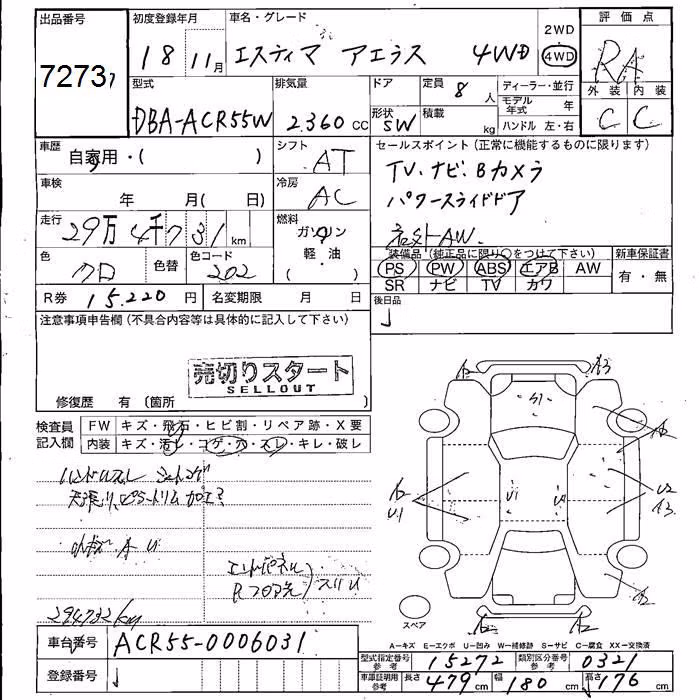 出品番号
7273
初度登録年月
18 11月
車名・グレード
エスティマ アエラス 4WD
2WD
4WD
評価点
RA
外装 内装
C C
型式
DBA-ACR55W
排気量
2.360 cc
ドア
形状
SW
定員
8人
積載
kg
ディーラー・並行
モデル年式 年
ハンドル 左・右
車歴
自家用・( )
シフト
AT
車検
年 月( 日)
冷房
AC
走行
29万4千731km
燃料
ガソリン
軽・油
( )
色
クロ
色替
色コード
202
R券 15.220円
名変期限 月 日
セールスポイント(正常に機能するものに限ります)
TV、ナビ、Bカメラ
パワースライドドア
社外AW.
装備品(純正品に限り○をつけて下さい)
PS PW ABS エアB AW
SR ナビ TV カワ
新車保証書
有・無
後日品
注意事項申告欄(不具合内容等は具体的に記入して下さい)
売切りスタート
SELLOUT
修復歴 有(箇所 )
検査員記入欄
FW キズ・飛石・ヒビ割・リペア跡・X要
内装 キズ・汚レ・コゲ・穴・スレ・キレ・破レ
ハンドルスレ シートコゲ
天張り、ピラートリム加工?
小キズ A U
エンドパネル
Rフロア先 スリU
294732km
車台番号 ACR55-0006031
登録番号
A2 A3
S1
A2
A2 U1 U1 U2 A3
A2
A2 A2
スペア
A-キズ E-エクボ U-凹み W-補修跡 S-サビ C-腐食 XX-交換済
型式指定番号 参考 15272
類別区分番号 参考 0321
車庫証明用 参考 長さ 479cm 幅 180cm 高さ 176cm